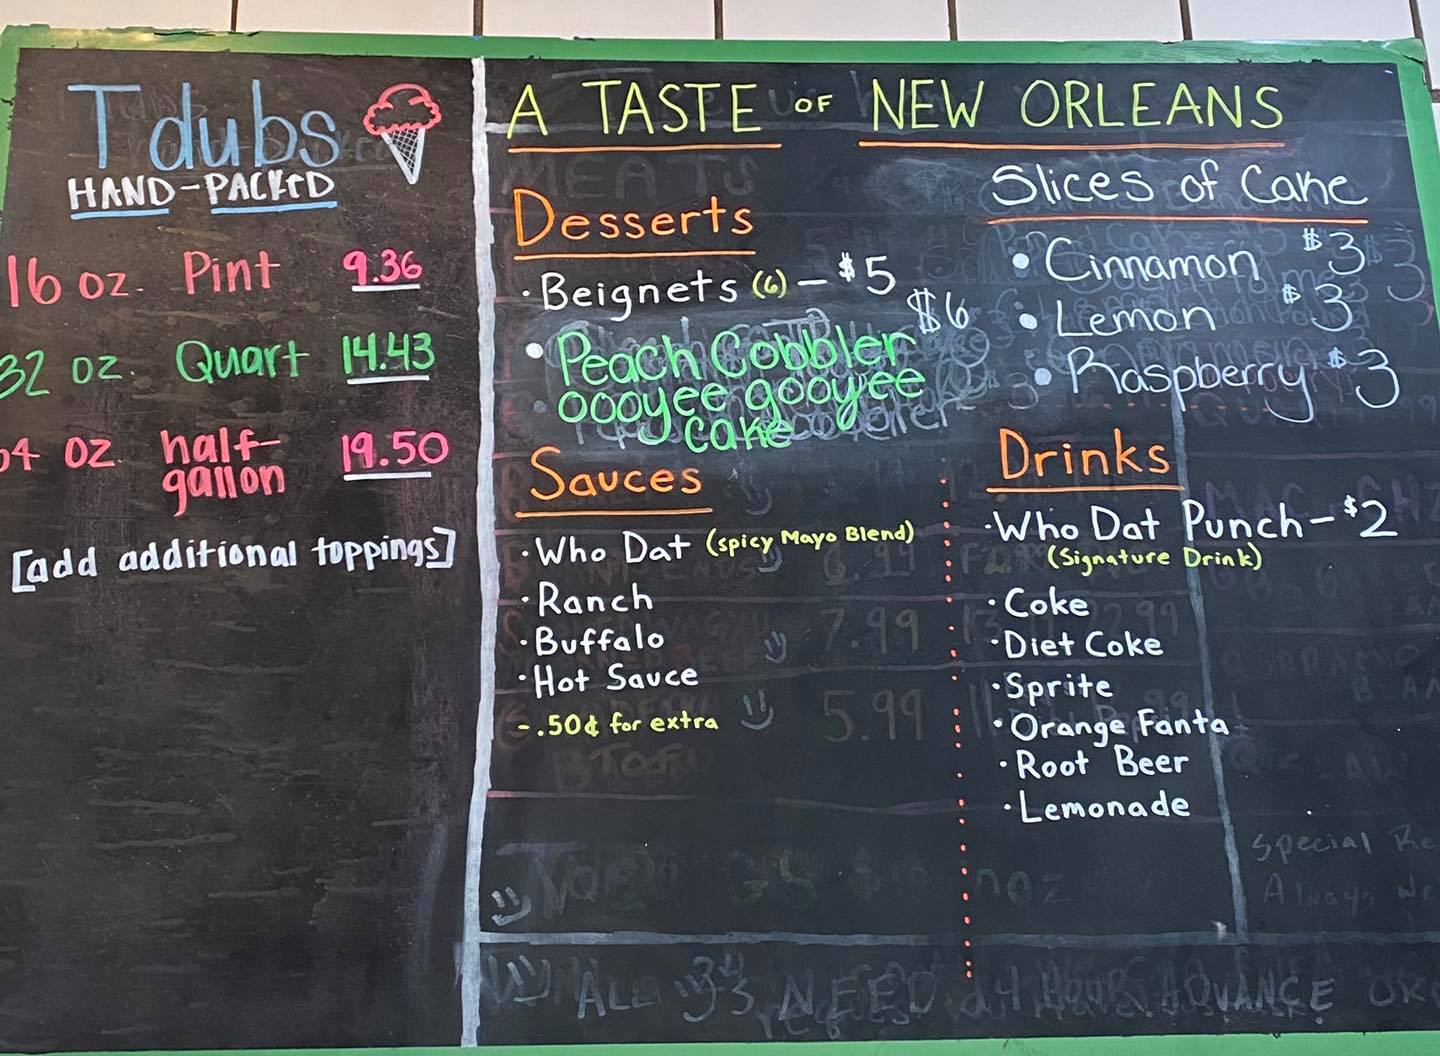 Tdubs
HAND-PACKED
16 oz. Pint 9.36
32 oz. Quart 14.43
64 oz. half-
gallon 19.50
[add additional toppings]
A TASTE OF NEW ORLEANS
Desserts
· Beignets (6) - $5
• Peach Cobbler $6
oooyee gooyee
cake
Sauces
· Who Dat (spicy Mayo Blend)
· Ranch
· Buffalo
· Hot Sauce
- .50¢ for extra
Slices of Cake
• Cinnamon $3
• Lemon $3
• Raspberry $3
Drinks
· Who Dat Punch - $2
(Signature Drink)
· Coke
· Diet Coke
· Sprite
· Orange Fanta
· Root Beer
· Lemonade
MEATS
6.99
7.99
5.99
Special
Always
ALL NEED 24 HOUR ADVANCE